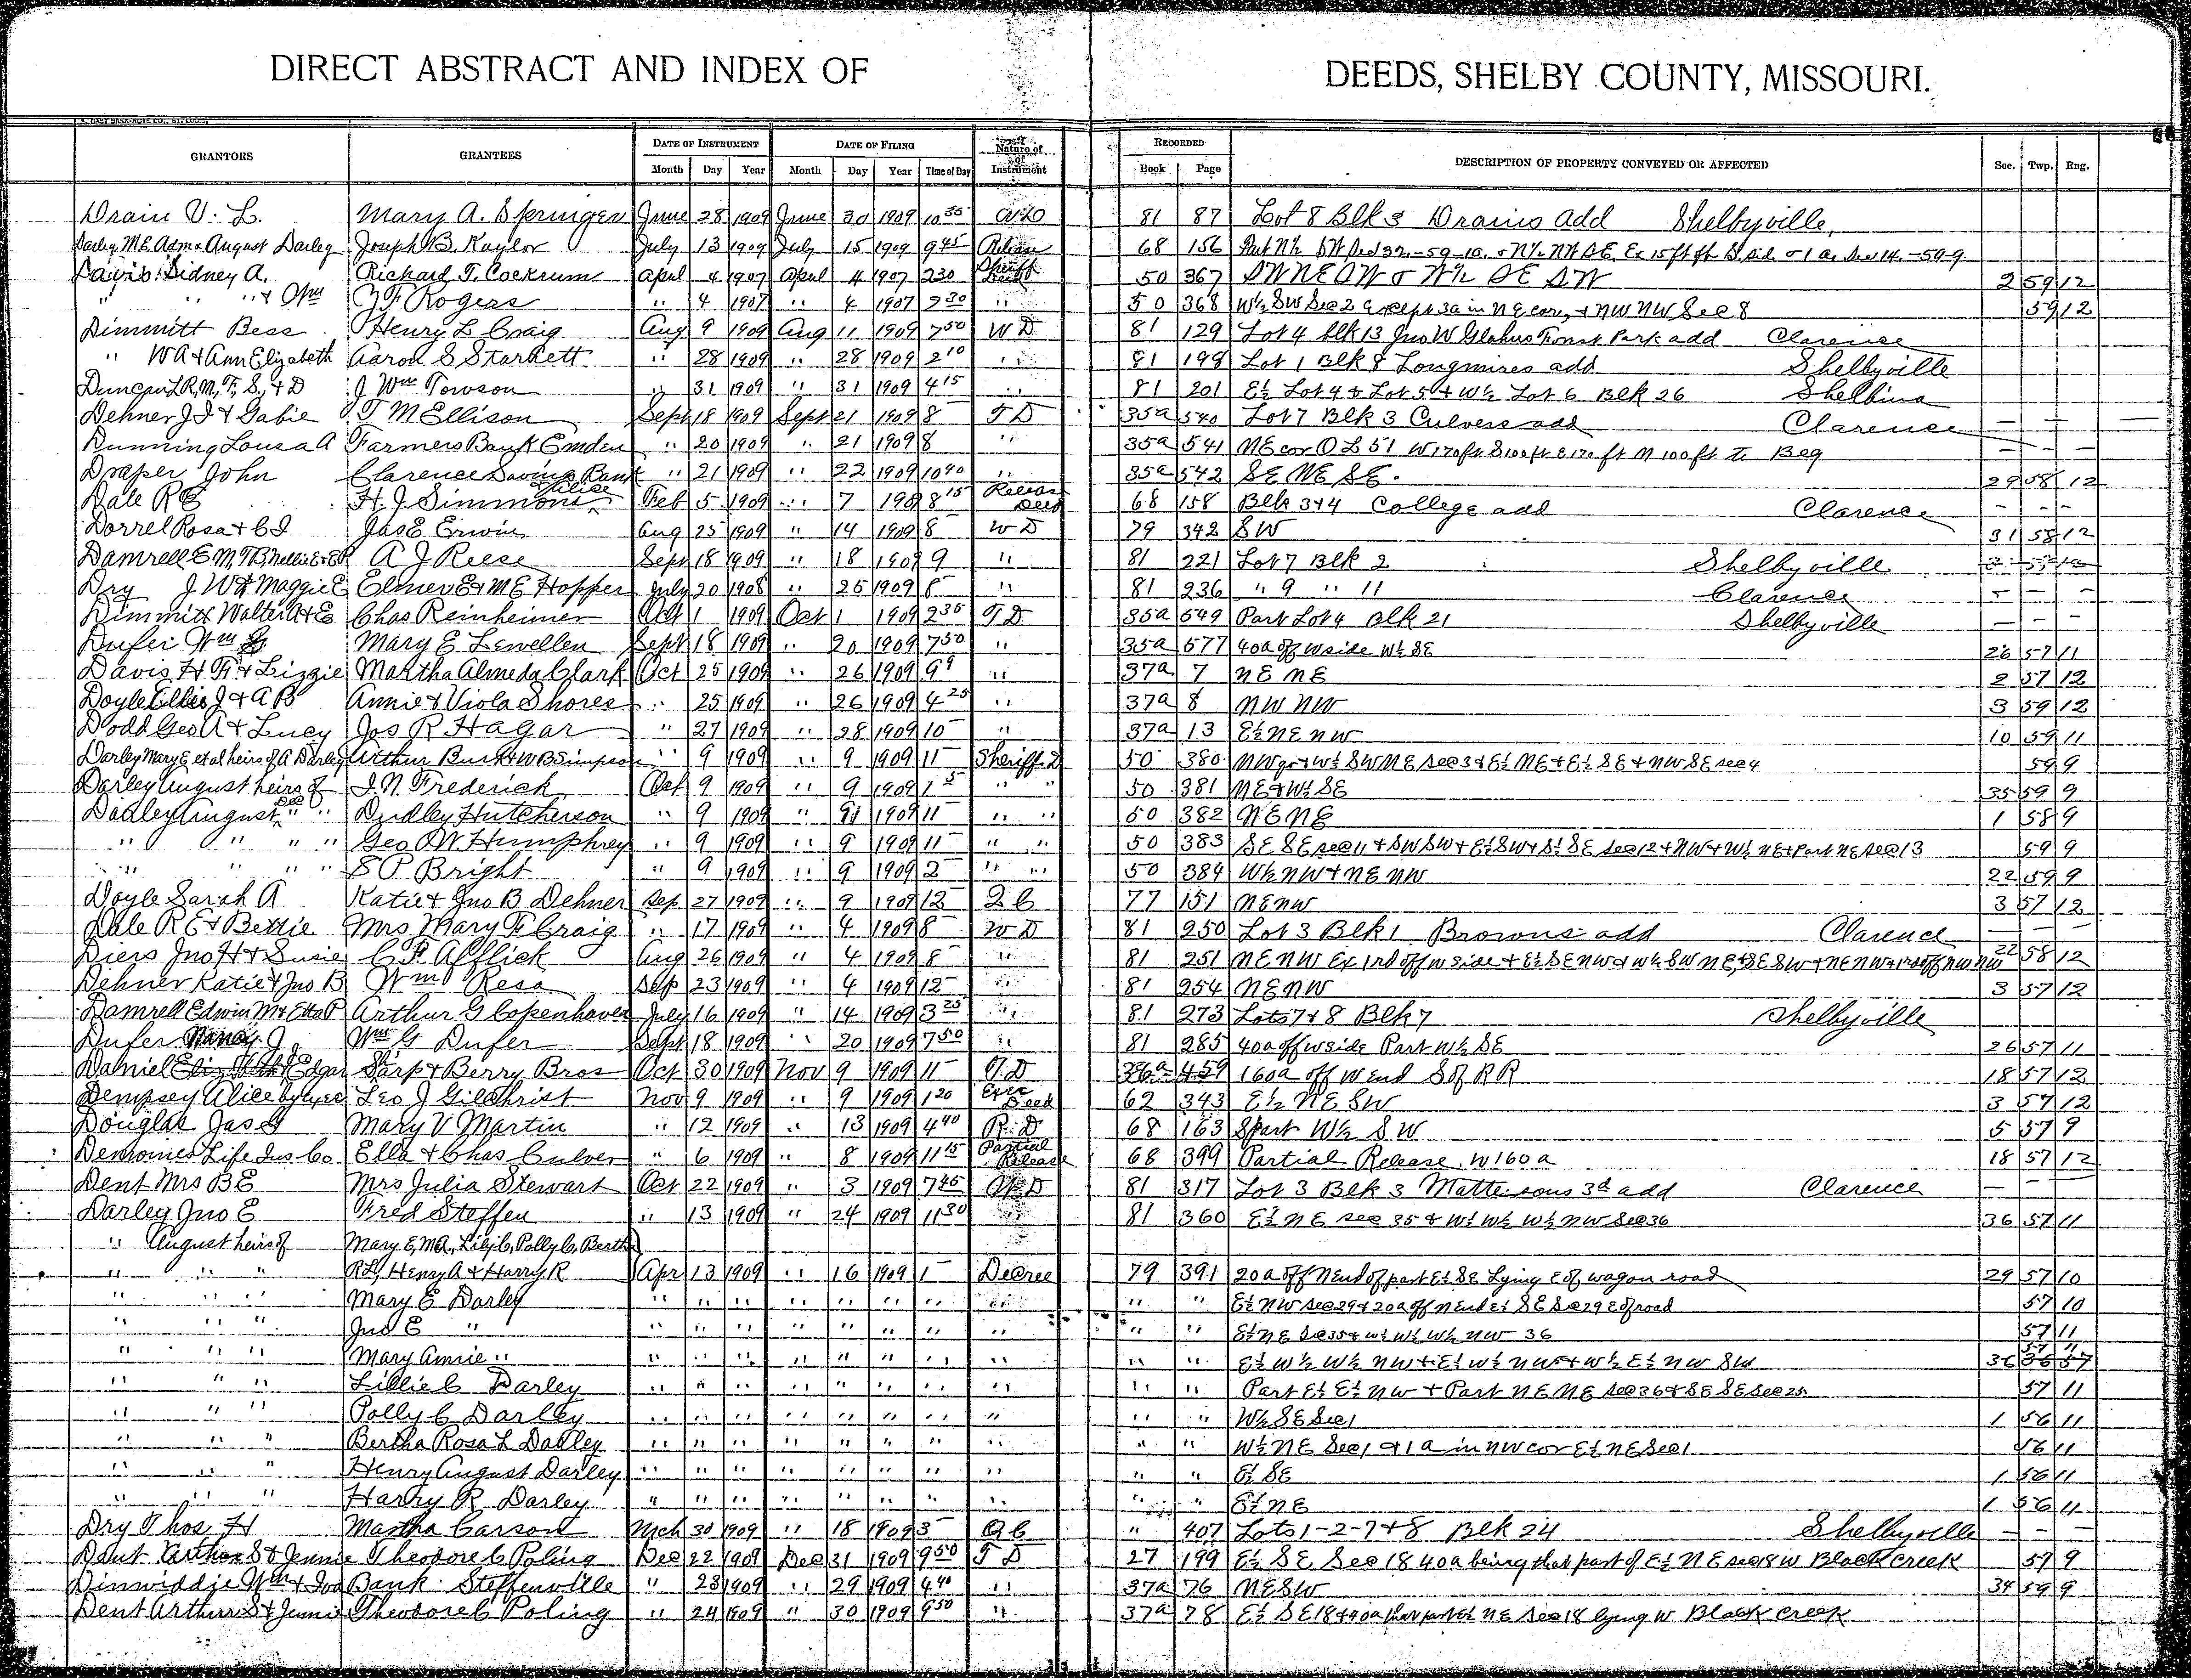 DIRECT ABSTRACT AND INDEX OF DEEDS, SHELBY COUNTY, MISSOURI.
GRANTORS GRANTEES DATE OF INSTRUMENT DATE OF FILING Nature of Instrument RECORDED DESCRIPTION OF PROPERTY CONVEYED OR AFFECTED Sec. Twp. Rng.
Month Day Year Month Day Year Time of Day Book Page
Drain V. L. Mary A. Springer June 28 1909 June 30 1909 10 35 WD 81 87 Lot 8 Blk 3 Drains add Shelbyville
Darley M.E. Admx August Darley Joseph B. Kaylor July 13 1909 July 15 1909 9 45 Release 68 156
Davis Sidney A. Richard T. Cockrum April 4 1907 April 4 1907 2 30 Sheriff Deed 50 367 SW NE SW & W½ SE SW 2 59 12
" " " & Wm Z F Rogers " 4 1907 " 4 1907 2 30 " 50 368 W½ SW Sec 2 Except 3a in NE cor, & NW NW Sec 8 59 12
Dimmitt Bess Henry L Craig Aug 9 1909 Aug 11 1909 7 50 WD 81 129 Lot 4 blk 13 Jno W Glahns Forest Park add Clarence
" W A & Ann Elizabeth Aaron S Starkett " 28 1909 " 28 1909 2 10 " 81 198 Lot 1 Blk 8 Longmires add Shelbyville
Duncan L R, M, F, S, & D J Wm Towson " 31 1909 " 31 1909 4 15 " 81 201 E½ Lot 4 & Lot 5 & W½ Lot 6 Blk 26 Shelbina
Dehner J J & Gabie T M Ellison Sept 18 1909 Sept 21 1909 8 T D 35a 540 Lot 7 Blk 3 Culvers add Clarence — — —
Dunning Lousa A Farmers Bank Emden " 20 1909 " 21 1909 8 " 35a 541 NE cor O L 51 W 170 ft S 100 ft E 170 ft N 100 ft To Beg — — —
Draper John Clarence Savings Bank " 21 1909 " 22 1909 10 40 " 35a 542 SE NE SE. 29 58 12
Dale R E H. J. Simmons & Alice Feb 5 1909 " 7 190 8 15 Release Deed 68 158 Blk 3 & 4 College add Clarence — — —
Dorrel Rosa & C I Jas E Erwin Aug 25 1909 " 14 1909 8 W D 79 342 SW 31 58 12
Damrell E M, T B, Nellie E & E P A J Reese Sept 18 1909 " 18 1909 9 " 81 221 Lot 7 Blk 2 Shelbyville
Dry J W & Maggie E Elmer E & M E Hopper July 20 1908 " 25 1909 8 " 81 236 " 9 " 11 Clarence — — —
Dimmitt Walter A & E Chas Reinheimer Oct 1 1909 Oct 1 1909 2 35 T D 35a 549 Part Lot 4 Blk 21 Shelbyville — — —
Dufer Wm G Mary E Lewellen Sept 18 1909 " 20 1909 7 50 " 35a 577 40a off W side W½ SE 26 57 11
Davis H F & Lizzie Martha Almeda Clark Oct 25 1909 " 26 1909 9 " 37a 7 NE NE 2 57 12
Doyle Ellis J & A B Annie & Viola Shores " 25 1909 " 26 1909 4 25 " 37a 8 NW NW 3 59 12
Dodd Geo A & Lucy Jos R Hagar " 27 1909 " 28 1909 10 " 37a 13 E½ NE NW 10 59 11
Darley Mary E et al heirs of A Darley Arthur Bush & W B Simpson " 9 1909 " 9 1909 11 Sheriff D 50 380 NW qr & W½ SW NE sec 3 & E½ NE & E½ SE & NW SE sec 4 59 9
Darley August heirs of I. N Frederick Oct 9 1909 " 9 1909 1 " " 50 381 NE & W½ SE 35 59 9
Darley August Dec'd " " Dudley Hutcherson " 9 1909 " 9 1909 11 " " 50 382 NE NE 1 58 9
" " " " Geo W Humphrey " 9 1909 " 9 1909 11 " " 50 383 SE SE sec 11 & SW SW & E½ SW & S½ SE sec 12 & NW & W½ NE & Part NE sec 13 59 9
" " " " S P Bright " 9 1909 " 9 1909 2 " " 50 384 W½ NW & NE NW 22 59 9
Doyle Sarah A Katie & Jno B Dehner Sep 27 1909 " 9 1909 12 Q C 77 151 NE NW 3 57 12
Dale R E & Bettie Mrs Mary F Craig " 17 1909 " 4 1909 8 W D 81 250 Lot 3 Blk 1 Browns add Clarence — — —
Diers Jno H & Susie C F Afflick Aug 26 1909 " 4 1909 8 " 81 251 NE NW Ex 1rd off W side & E½ SE NW & W½ SW NE & SE SW & NE NW & 1rd off NW NW 22 58 12
Dehner Katie & Jno B Wm Resa Sep 23 1909 " 4 1909 12 " 81 254 NE NW 3 57 12
Damrell Edwin M & Etta P Arthur G Copenhaver July 16 1909 " 14 1909 3 25 " 81 273 Lots 7 & 8 Blk 7 Shelbyville
Dufer Nancy J. Wm G Dufer Sept 18 1909 " 20 1909 7 50 " 81 285 40a off W side Part W½ SE 26 57 11
Daniel Edgar Sarp & Berry Bros Oct 30 1909 Nov 9 1909 11 T D 36a 459 160a off W end S of R R 18 57 12
Dempsey Alice by exec Leo J Gilchrist Nov 9 1909 " 9 1909 1 20 Exec Deed 62 343 E½ NE SW 3 57 12
Douglas Jas G Mary V Martin " 12 1909 " 13 1909 4 40 R. D 68 163 S part W½ SW 5 57 9
Demoines Life Ins Co Ella & Chas Culver " 6 1909 " 8 1909 11 15 Partial Release 68 399 Partial Release W 160 a 18 57 12
Dent Mrs B E Mrs Julia Stewart Oct 22 1909 " 3 1909 7 45 W D 81 317 Lot 3 Blk 3 Mattesons 3d add Clarence — — —
Darley Jno E Fred Steffen " 13 1909 " 24 1909 11 30 81 360 E½ NE sec 35 & W½ W½ W½ NW Sec 36 36 57 11
" August heirs of Mary E, M A, Lily C, Polly C, Bertha
" " " R L, Henry A & Harry R Apr 13 1909 " 16 1909 1 Decree 79 391 20a off N end of part E½ SE Lying E of wagon road 29 57 10
" " " Mary E Darley " " " " " " " " " " E½ NW Sec 29 & 20a off N End E½ SE Sec 29 E of road 57 10
" " " Jno E " " " " " " " " " " " E½ NE Sec 35 & W½ W½ W½ NW 36 57 11
" " " Mary Annie " " " " " " " " " " " E½ W½ W½ NW & E½ W½ NW & W½ E½ NW SW 36 57 11
" " " Lillie C Darley " " " " " " " " " " Part E½ E½ NW & Part NE NE Sec 36 & SE SE Sec 25 57 11
" " " Polly C Darley " " " " " " " " " " W½ SE Sec 1 1 56 11
" " " Bertha Rosa L Darley " " " " " " " " " " W½ NE Sec 1 & 1 a in NW cor E½ NE Sec 1 56 11
" " " Henry August Darley " " " " " " " " " " E½ SE 1 56 11
" " " Harry R Darley " " " " " " " " " " E½ NE 1 56 11
Dry Thos H Martha Carson Mch 30 1909 " 18 1909 3 Q C " 407 Lots 1-2-7 & 8 Blk 24 Shelbyville — — —
Dent Arthur S & Jennie Theodore C Poling Dec 22 1909 Dec 31 1909 9 50 T D 27 199 E½ SE Sec 18 40a being that part of E½ NE sec 18 W Black creek 57 9
Dinwiddie Wm & Ida Bank Steffenville " 23 1909 " 29 1909 4 40 " 37a 76 NE SW 34 59 9
Dent Arthur S & Jennie Theodore C Poling " 24 1909 " 30 1909 9 50 " 37a 78 E½ SE 18 & 40a that part E½ NE Sec 18 lying W Black Creek